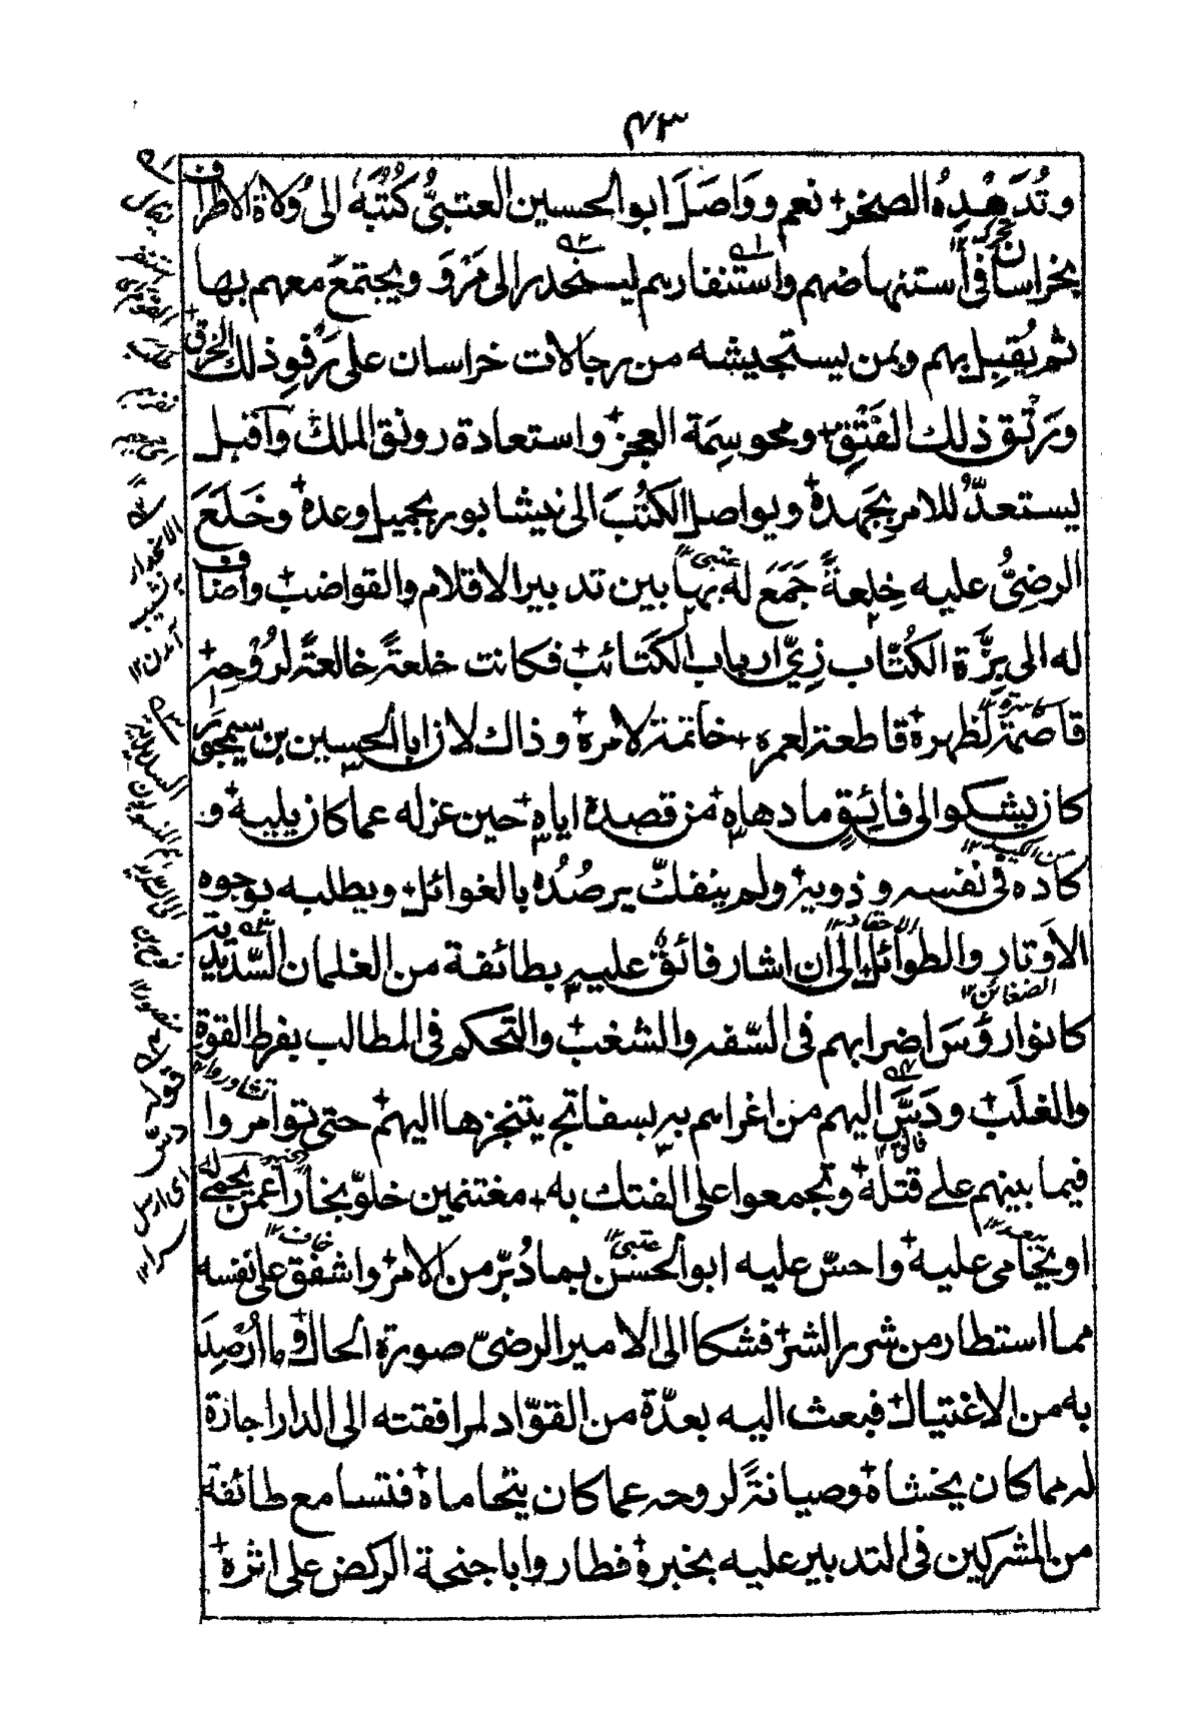 ٧٣
وتُدَهْدِهُ الصخر نعم ووَاصَلَ ابو الحسين العتبىُّ كُتُبَهٗ الى وُلاة الاطراف
بخراسان فى استنهاضهم واستنفارهم لينحدر الى مَرْوَ ويجتمعَ معهم بها
ثم يُقبِل بهم وبمن يستجيشه من رجالات خراسان على رَفوِ ذلك الخرق
ورَتْق ذلك الفَتْقِ ومحو سِمَة العجز واستعادة رونق الملك وَاقبل
يستعدُّ للامر بجَهدهٖ ويواصل الكتُبَ الى نيشابور بجميل وعده وخَلَعَ
الرضىُّ عليه خِلعةً جَمَعَ له بها بين تدبير الاقلام والقواضب واضاف
له الى بِزَّة الكُتّاب زِىَّ ارباب الكَتائب فكانت خلعةً خالعةً لرُوْحِهٖ
قاصمةً لظهره قاطعة لعمره خاتمة لامره وذاك لان ابا الحسين بن سيمجور
كان يشكوا الى فائق ما دهاه من قصده اياه حين عزله عما كان يليه و
كاده فى نفسه وذويه ولم ينفكّ يرصُدُه بالغوائل ويطلبه بوجوه
الاَوتارِ والطوائل الى ان اشار فائق عليه بطائفة من الغلمان السَّديديّة
كانوا رؤسَ اضرابهم فى السّفه والشغب والتحكم فى المطالب بفرط القوة
والغلَب ودَسَّ اليهم من اغراهم به بسفاتج يتنجزها اليهم حتى توامروا
فيما بينهم على قتله وتجمعوا على الفتك به مغتنمين خلوّ بخارا عمن يحمى له
او يحامى عليه واحسّ عليه ابو الحسن بما دُبّر من الامر واشفق على نفسه
مما استطار من شرر الشر فشكا الى الامير الرضىّ صورة الحال وما اُرْصِدَ
به من الاغتيال فبعث اليه بعدّة من القوّاد لمرافقته الى الدار اجازة
له مما كان يخشاه وصيانةً لروحه عما كان يتحاماه فتسامع طائفة
من المشركين فى التدبير عليه بخبره فطاروا باجنحة الركض على اثره
عتبى
الاحقاد
الضغائن
تشاوروا
فائق
عتبى
خاف
الانحدار
به نشيب
آمدن
منصور
قوله
دسّ
اى ارسل
سرا